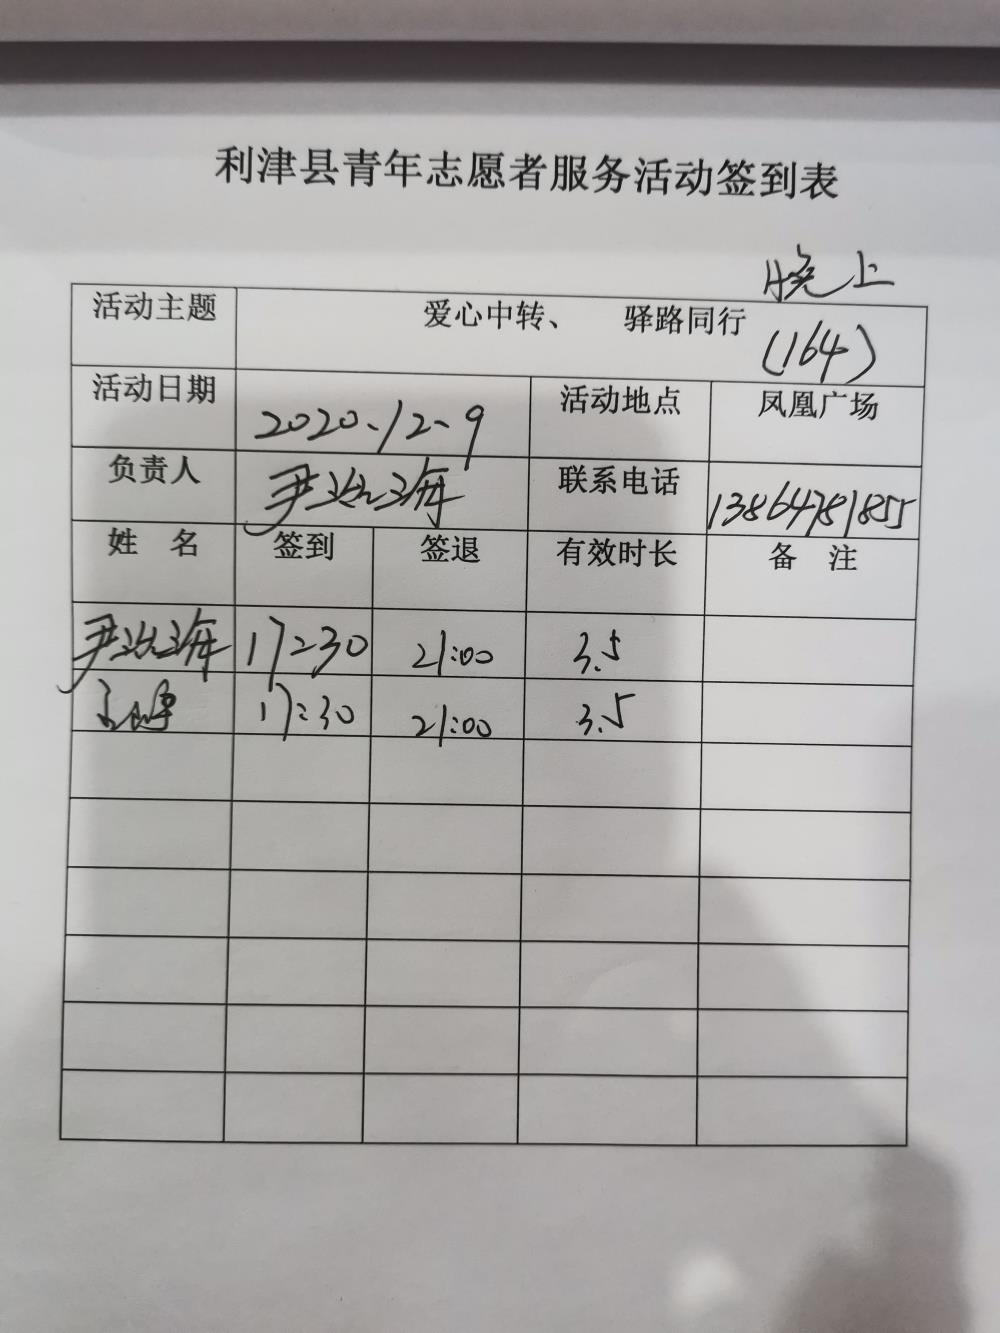 利津县青年志愿者服务活动签到表
晚上
活动主题 爱心中转、 驿路同行 (164)
活动日期 2020.12.9 活动地点 凤凰广场
负责人 尹海 联系电话 13864781855
姓 名 签到 签退 有效时长 备 注
尹海 17:30 21:00 3.5
17:30 21:00 3.5